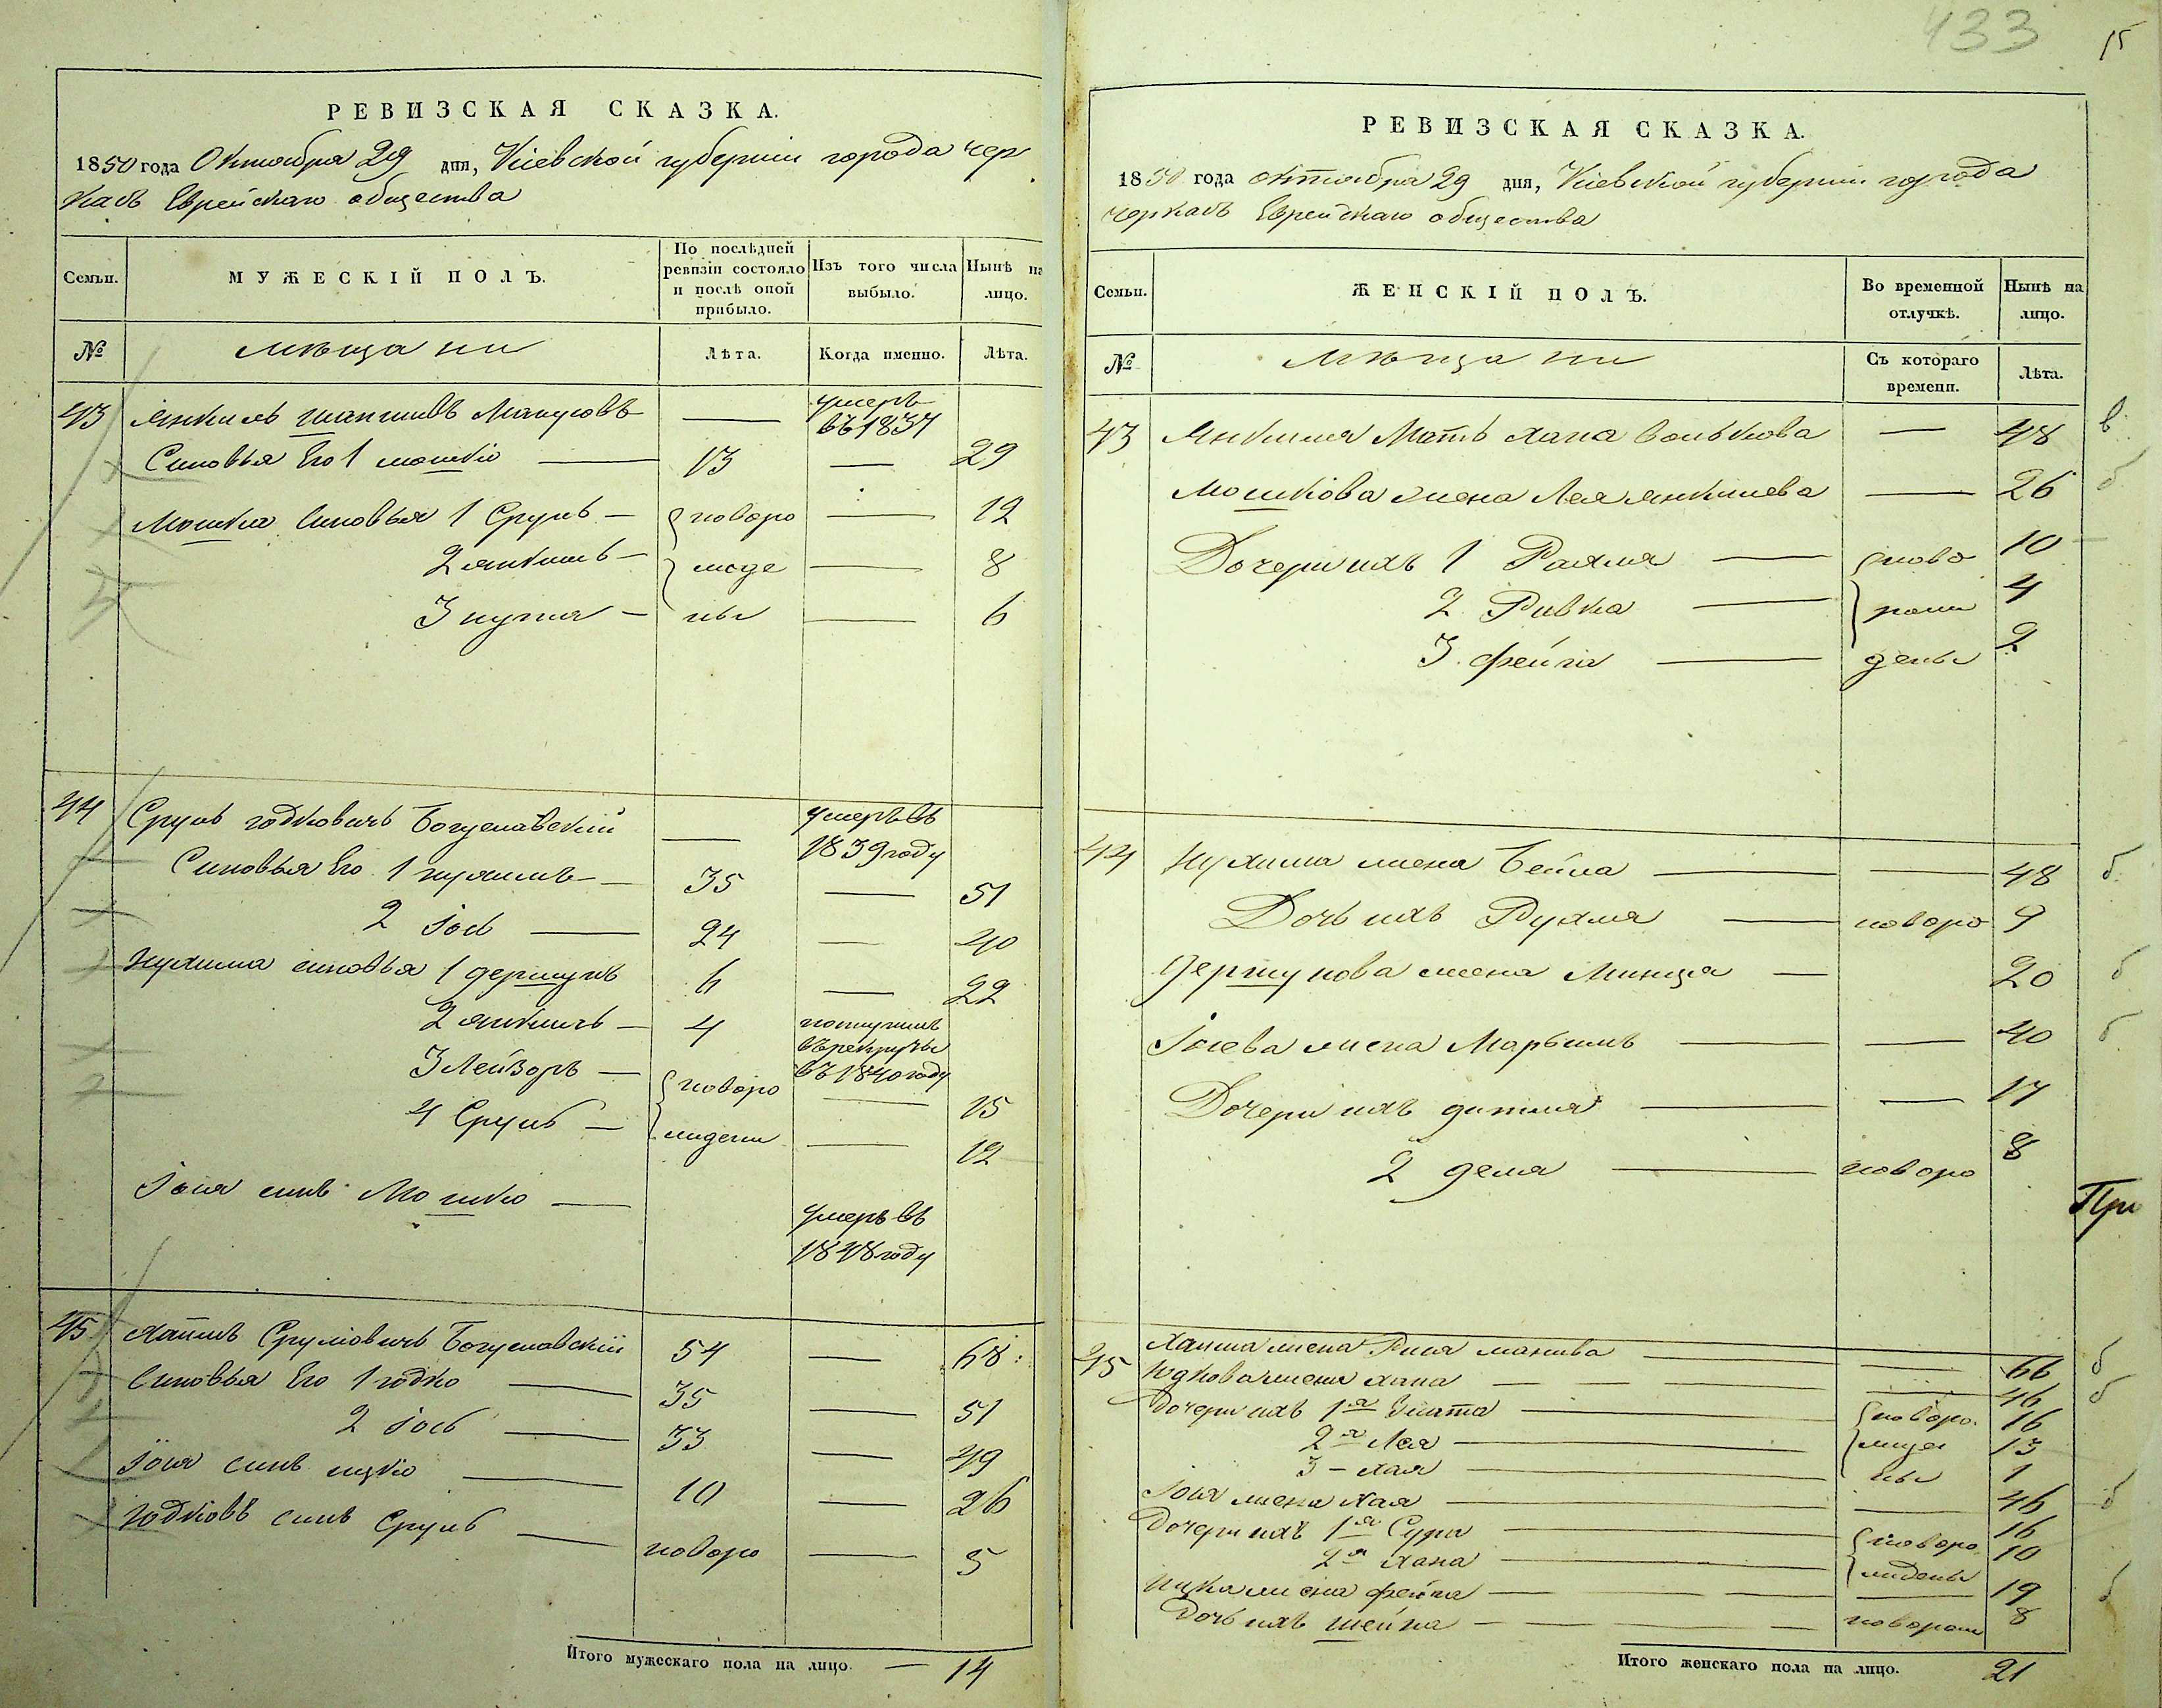 433
15
РЕВИЗСКАЯ СКАЗКА.
1850 года Октября 29 дня, Кіевской губерніи города Чер
касъ Еврейскаго общества
Семьи.
МУЖЕСКІЙ ПОЛЪ.
По послѣдней
ревизіи состояло
и послѣ оной
прибыло.
Изъ того числа
выбыло.
Нынѣ на
лицо.
№
мѣщани
Лѣта.
Когда именно.
Лѣта.
43 Янкиль Шапшивъ — умеръ
въ 1837
Синовья Его 1 мошко — 13 — 29
Мошка Синовья 1 Сруль — новоро — 12
2 янкиль — жде — 8
3 нута — ны — 6
44 Сруль юдковичъ Богуславскій — умеръ въ
1839 году
Синовья Его 1 нухимъ — 35 — 51
2 Іось — 24 — 40
Нухима синовья 1 гершунъ 6 — 22
2 янкиль — 4 поступилъ
въ рекруты
въ 1840 году
3 Лейзоръ — новоро — 15
4 Сруль — жденн — 12
Іося синъ Мошко — умеръ въ
1848 году
45 Хаимъ Сруліовичъ Богуславскій 54 — 68
Синовья Его 1 юдко — 35 — 51
2 Іось — 33 — 49
Іося синъ ицко — 10 — 26
Юдковъ синъ Сруль — новоро — 5
Итого мужескаго пола на лицо. — 14
РЕВИЗСКАЯ СКАЗКА.
1850 года октября 29 дня, Кіевской губерніи города
Черкасъ Еврейскаго общества
Семьи.
ЖЕНСКІЙ ПОЛЪ.
Во временной
отлучкѣ.
Нынѣ на
лицо.
№
мѣщани
Съ котораго
времени.
Лѣта.
43 Янкиля Мать Хана Волькова — 48
Мошкова жена Лея янкилева — 26
Дочери ихъ 1 Рахля — ново 10
2 Ривка — рож 4
3 фейга — дены 2
44 Нухима жена Бейла — — 48
Дочь ихъ Рухля — новоро 9
Гершунова жена Минця — 20
Іосева жена Марьимъ — — 40
Дочери ихъ — — 17
2 — новоро 8
При
45 Хаима жена Рися — — 66
Юдкова жена хана — — 46
Дочери ихъ 1я Злата — новоро 16
2я Лея — жде 13
3 — хая — ны 1
Іося жена Хая — — 46
Дочери ихъ 1я Сура — новоро 16
2я хана — ждены 10
Ицка жена фейга — — 19
Дочь ихъ шейна — новорож 8
Итого женскаго пола на лицо. 21